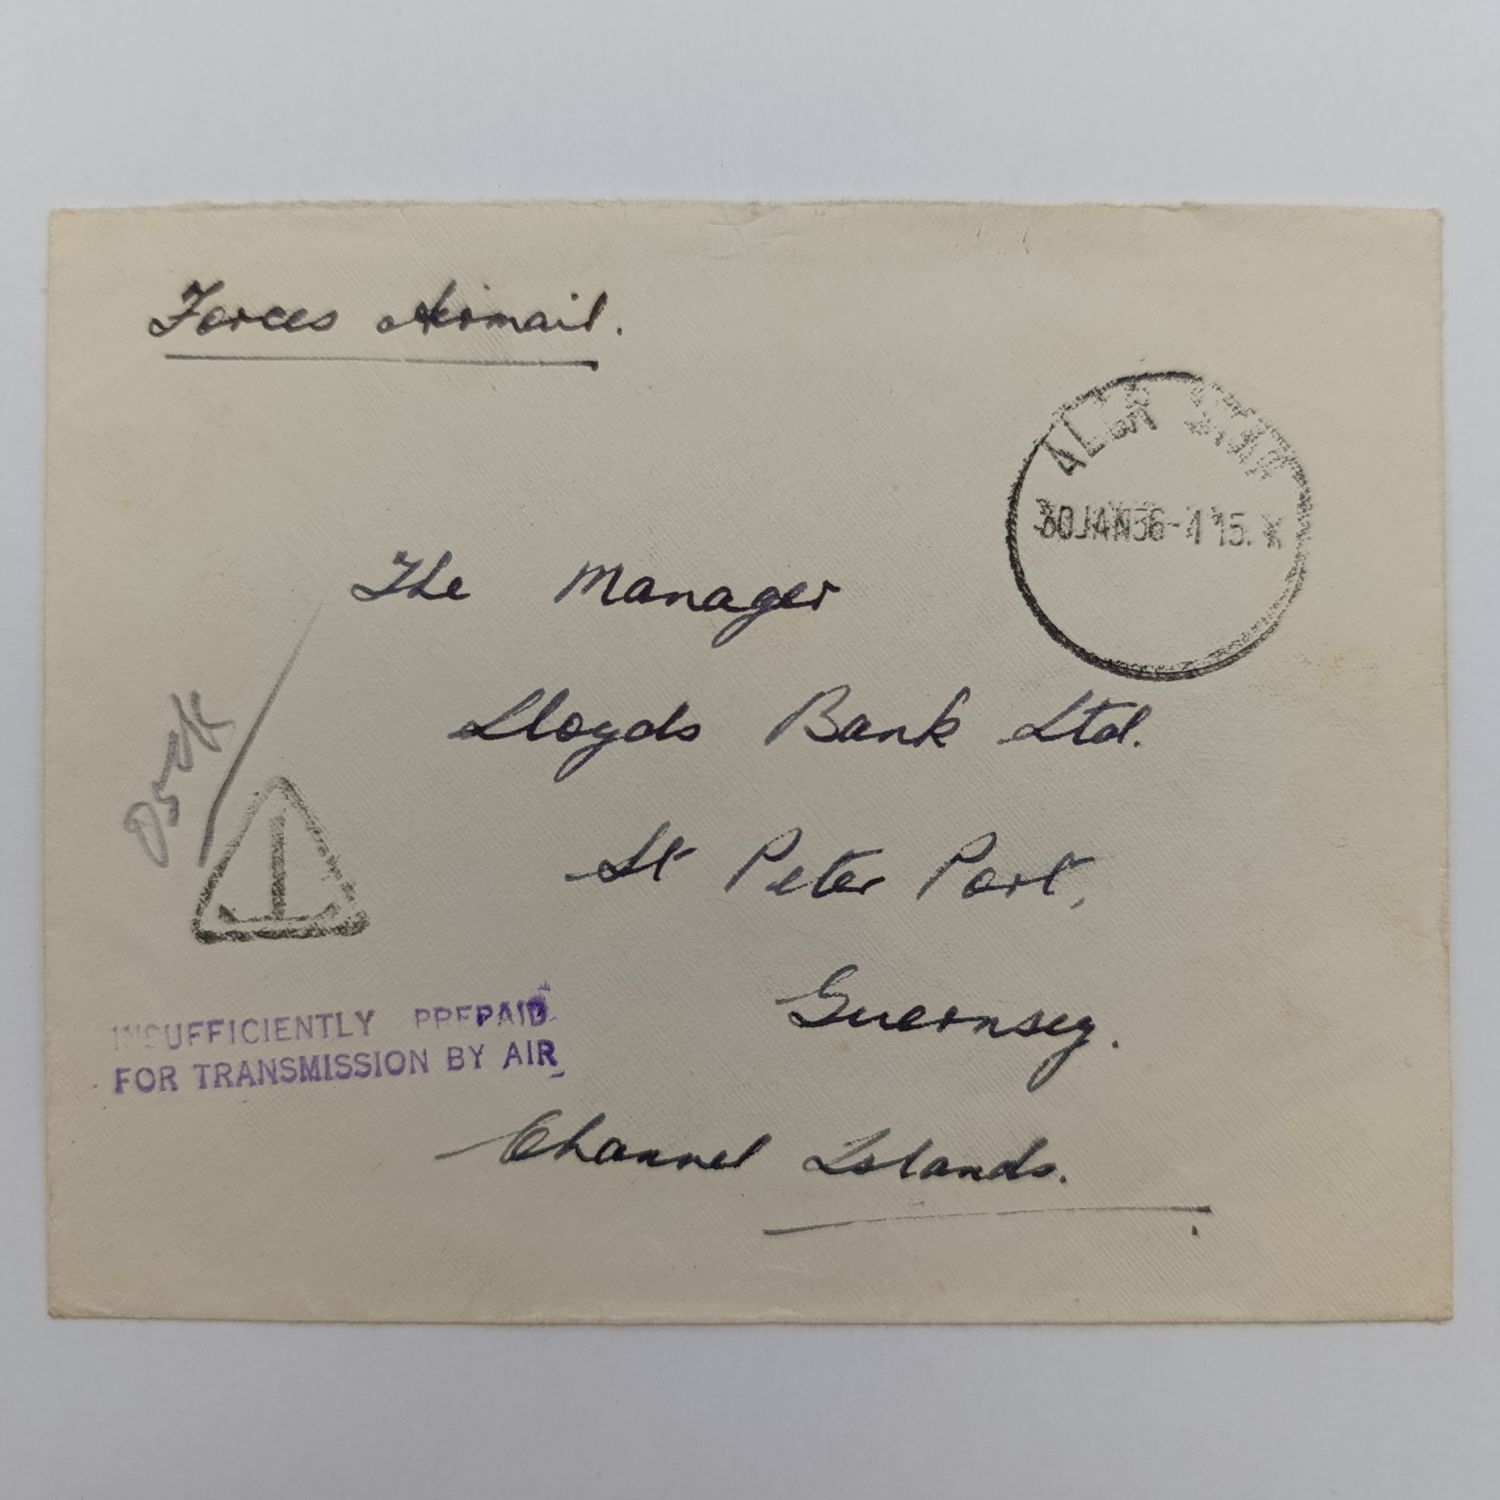 Forces Airmail.
ALOR STAR
30JAN56-415.
The Manager
Lloyds Bank Ltd.
St Peter Port,
Guernsey.
Channel Islands.
T
INSUFFICIENTLY PREPAID
FOR TRANSMISSION BY AIR